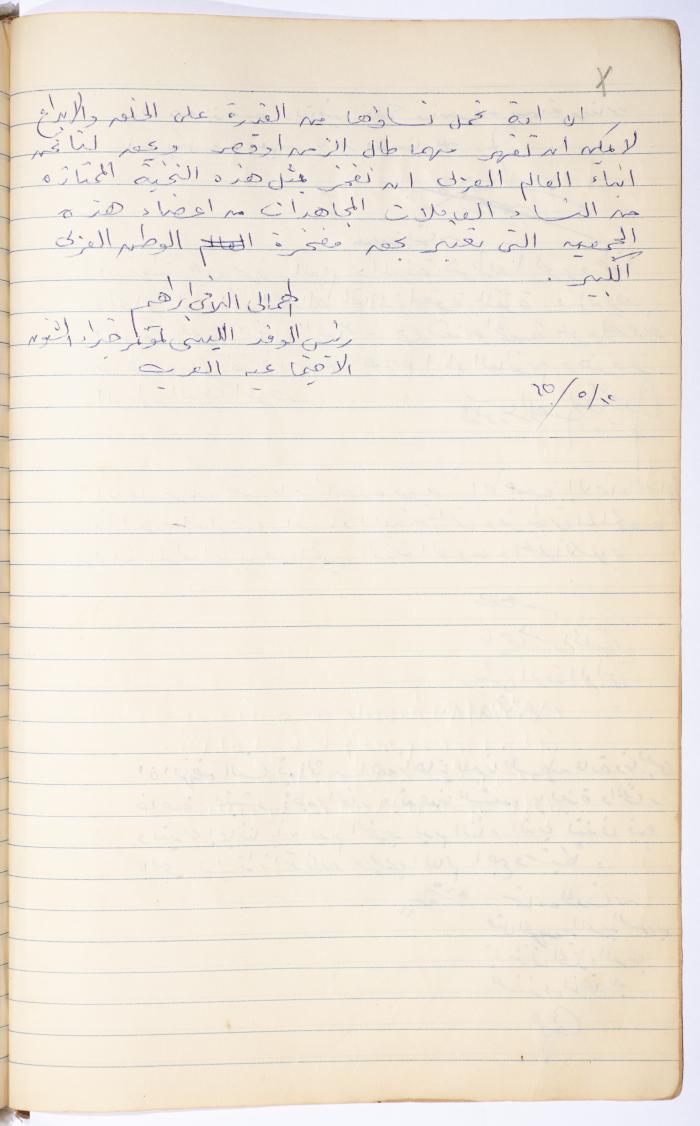 ان امة تحمل نساؤها من القدرة على الخلق والابداع
لا يمكن ان تقهر مهما طال الزمن او قصر ويحق لنا نحن
ابناء العالم العربي ان نفخر بمثل هذه النخبة الممتازه
من النساء العاملات المجاهدات من اعضاء هذه
الجمعيه التي تعتبر بحق مفخرة العالم الوطن العربي
الكبير .
الهمالي ابراهم
رئيس الوفد الليبي لمؤتمر خبراء الشئون
الاجتماعيه العرب
٦٥/٥/١٢